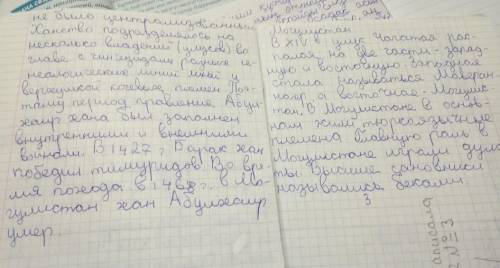 не было централизованным
Ханство подразделялось на
несколько владений (улусов) во
главе с чингизидами разных ге-
неалогических линий и
верхушкой кочевых племен. Поэ-
тому период правление Абул-
хаир хана был заполнен
внутренними и внешними
воинами. В 1427 г Барак хан
победил тимуридов. Во вре-
мя похода в 1468 г. в Мо-
гулистан хан Абулхаир
умер.
Могулистан.
В XIV в улус Чагатая рас-
палая на две части - запад-
ную и восточную. Западная
стала называться Маверан-
нахр а восточная - Могулис-
тан. В Могулистане в основ-
ном жили тюркоязычные
племена. Главную роль в
Могулистане играли дула-
ты. Высшие сановники
назывались беками
3
№ 3